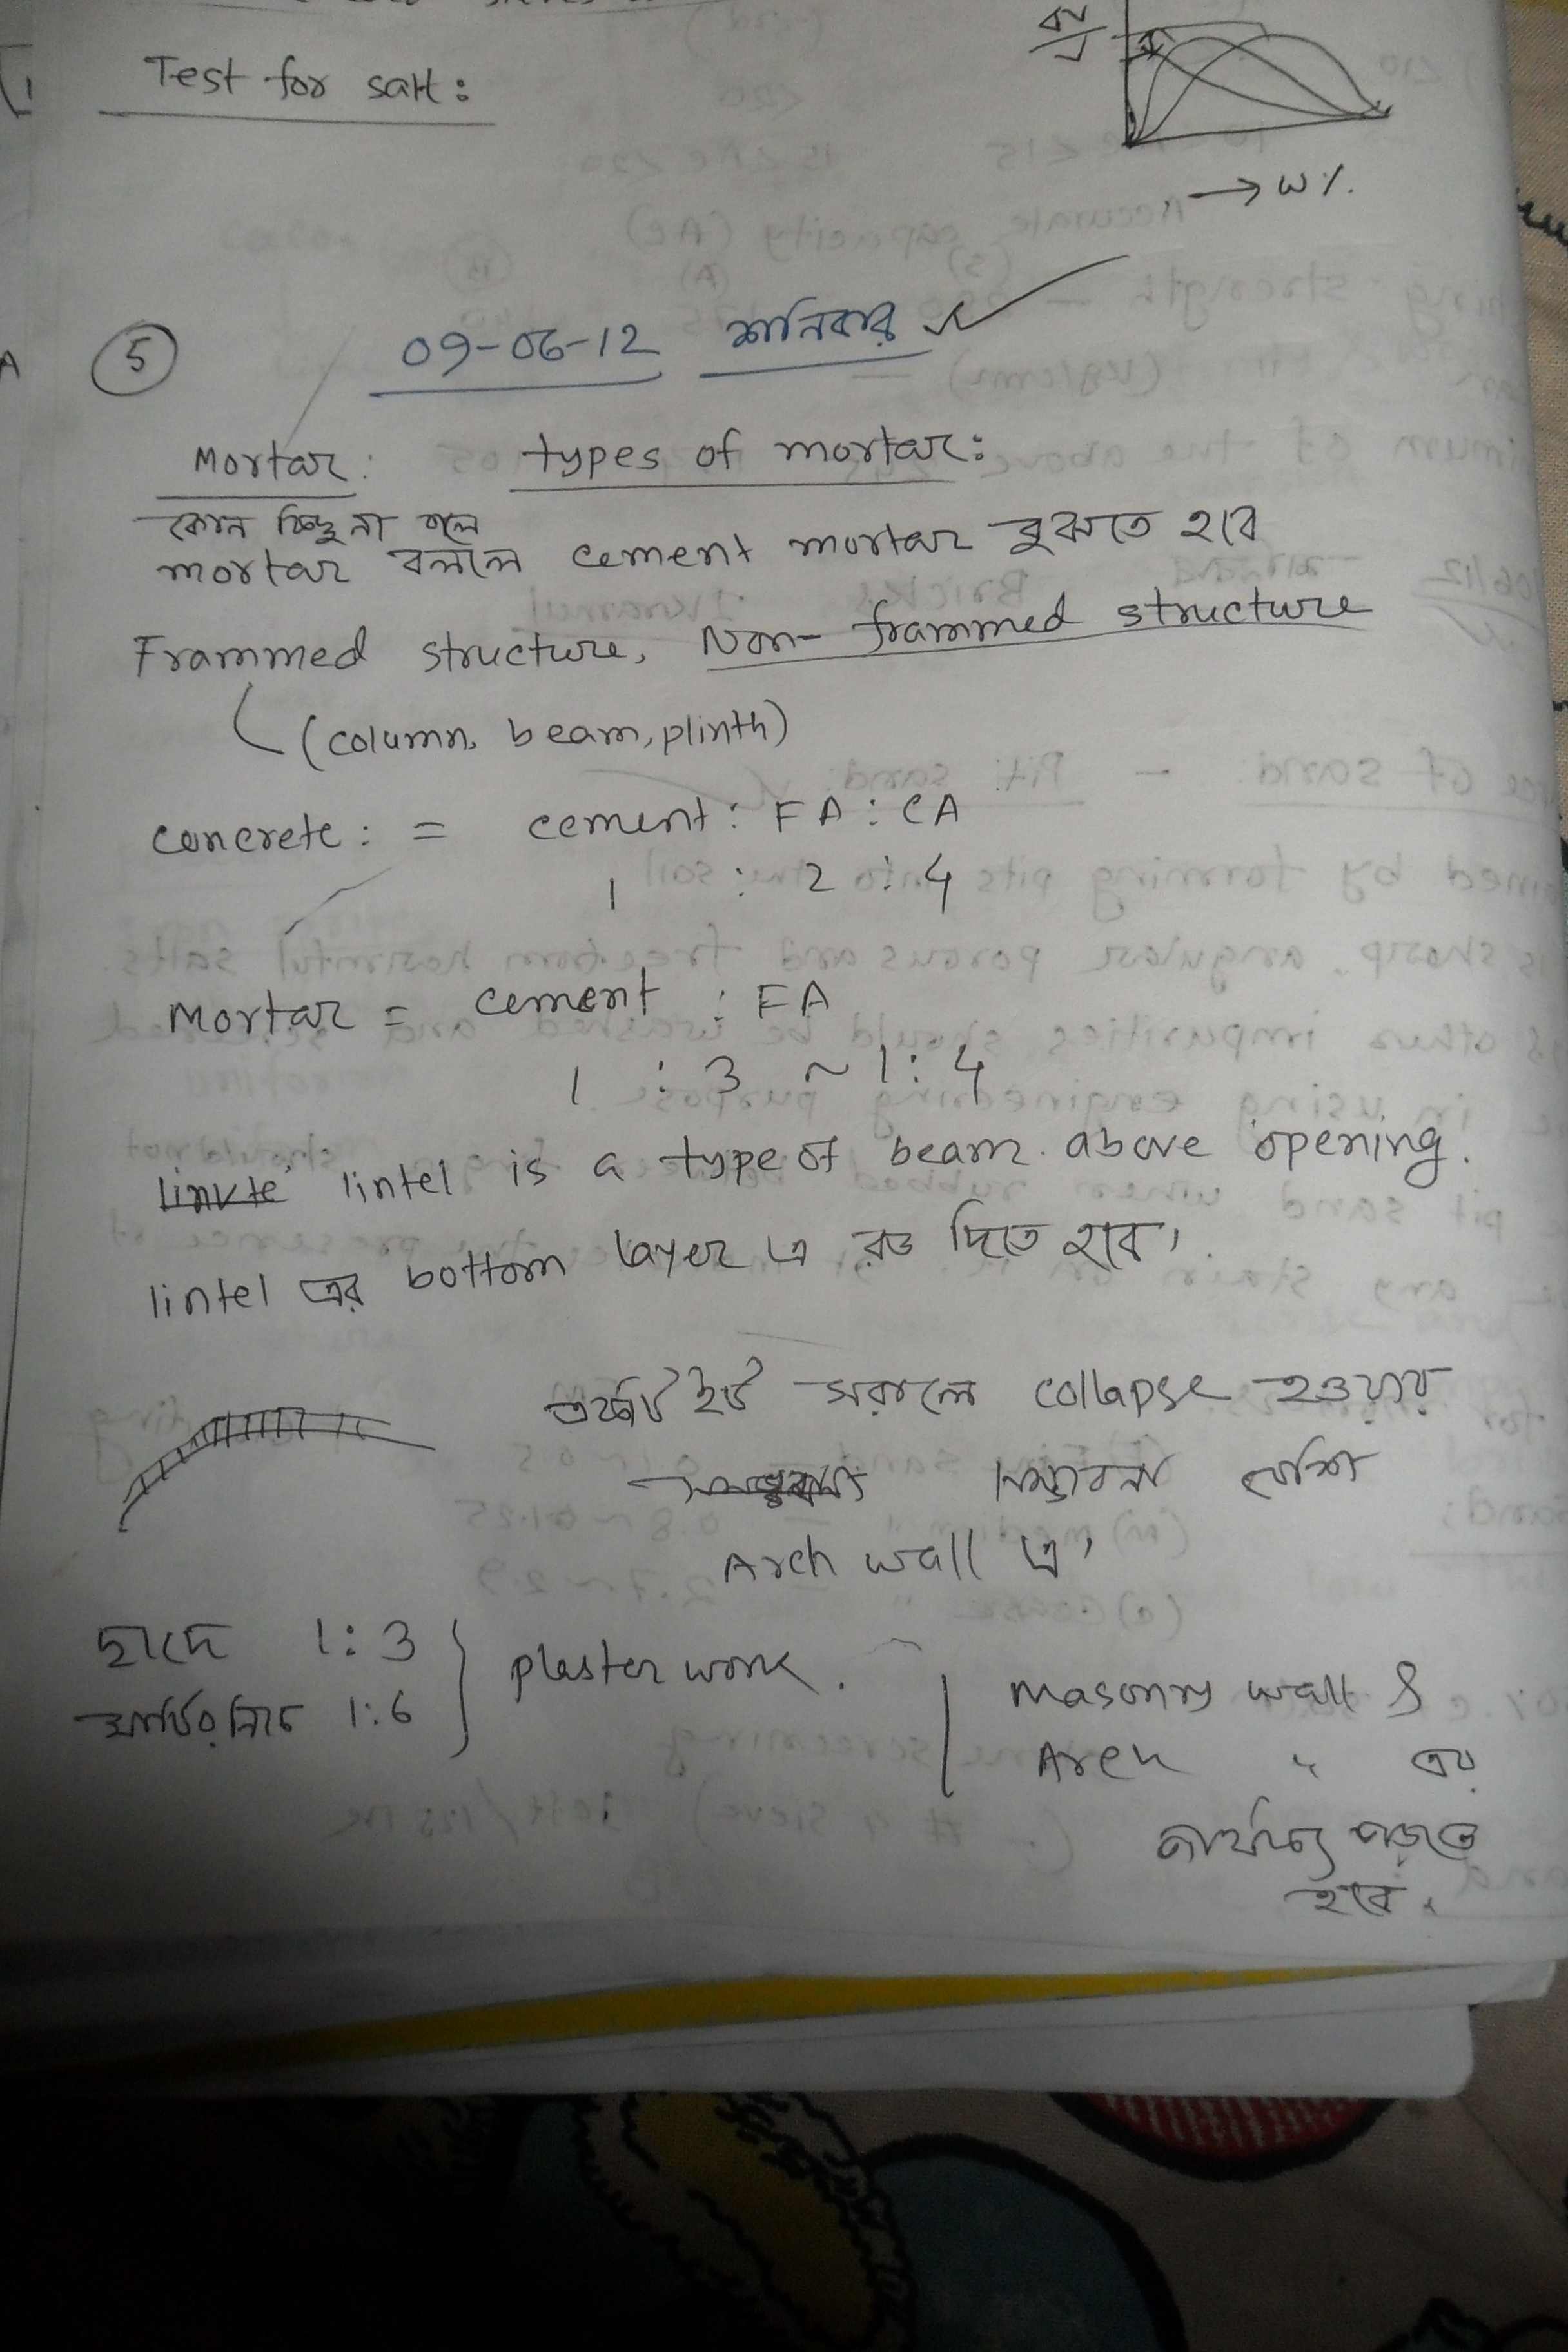 Test for salt:
ΔV
V
→ W%
5
09-06-12 শনিবার
Mortar: types of mortar:
কোন কিছু না বলে
mortar বললে cement mortar বুঝতে হবে
Frammed structure, Non-frammed structure
(column, beam, plinth)
concrete: = cement : FA : CA
1 : 2 : 4
Mortar = cement : FA
1 : 3 ~ 1 : 4
lintel is a type of beam above opening.
lintel এর bottom layer এ রড দিতে হবে।
একটি ইট সরালে collapse হওয়ার
সম্ভাবনা বেশি
Arch wall এ।
ছাদে 1:3
মাটির নিচে 1:6
plaster work.
Masonry wall &
Arch " এর
পার্থক্য পড়তে
হবে.